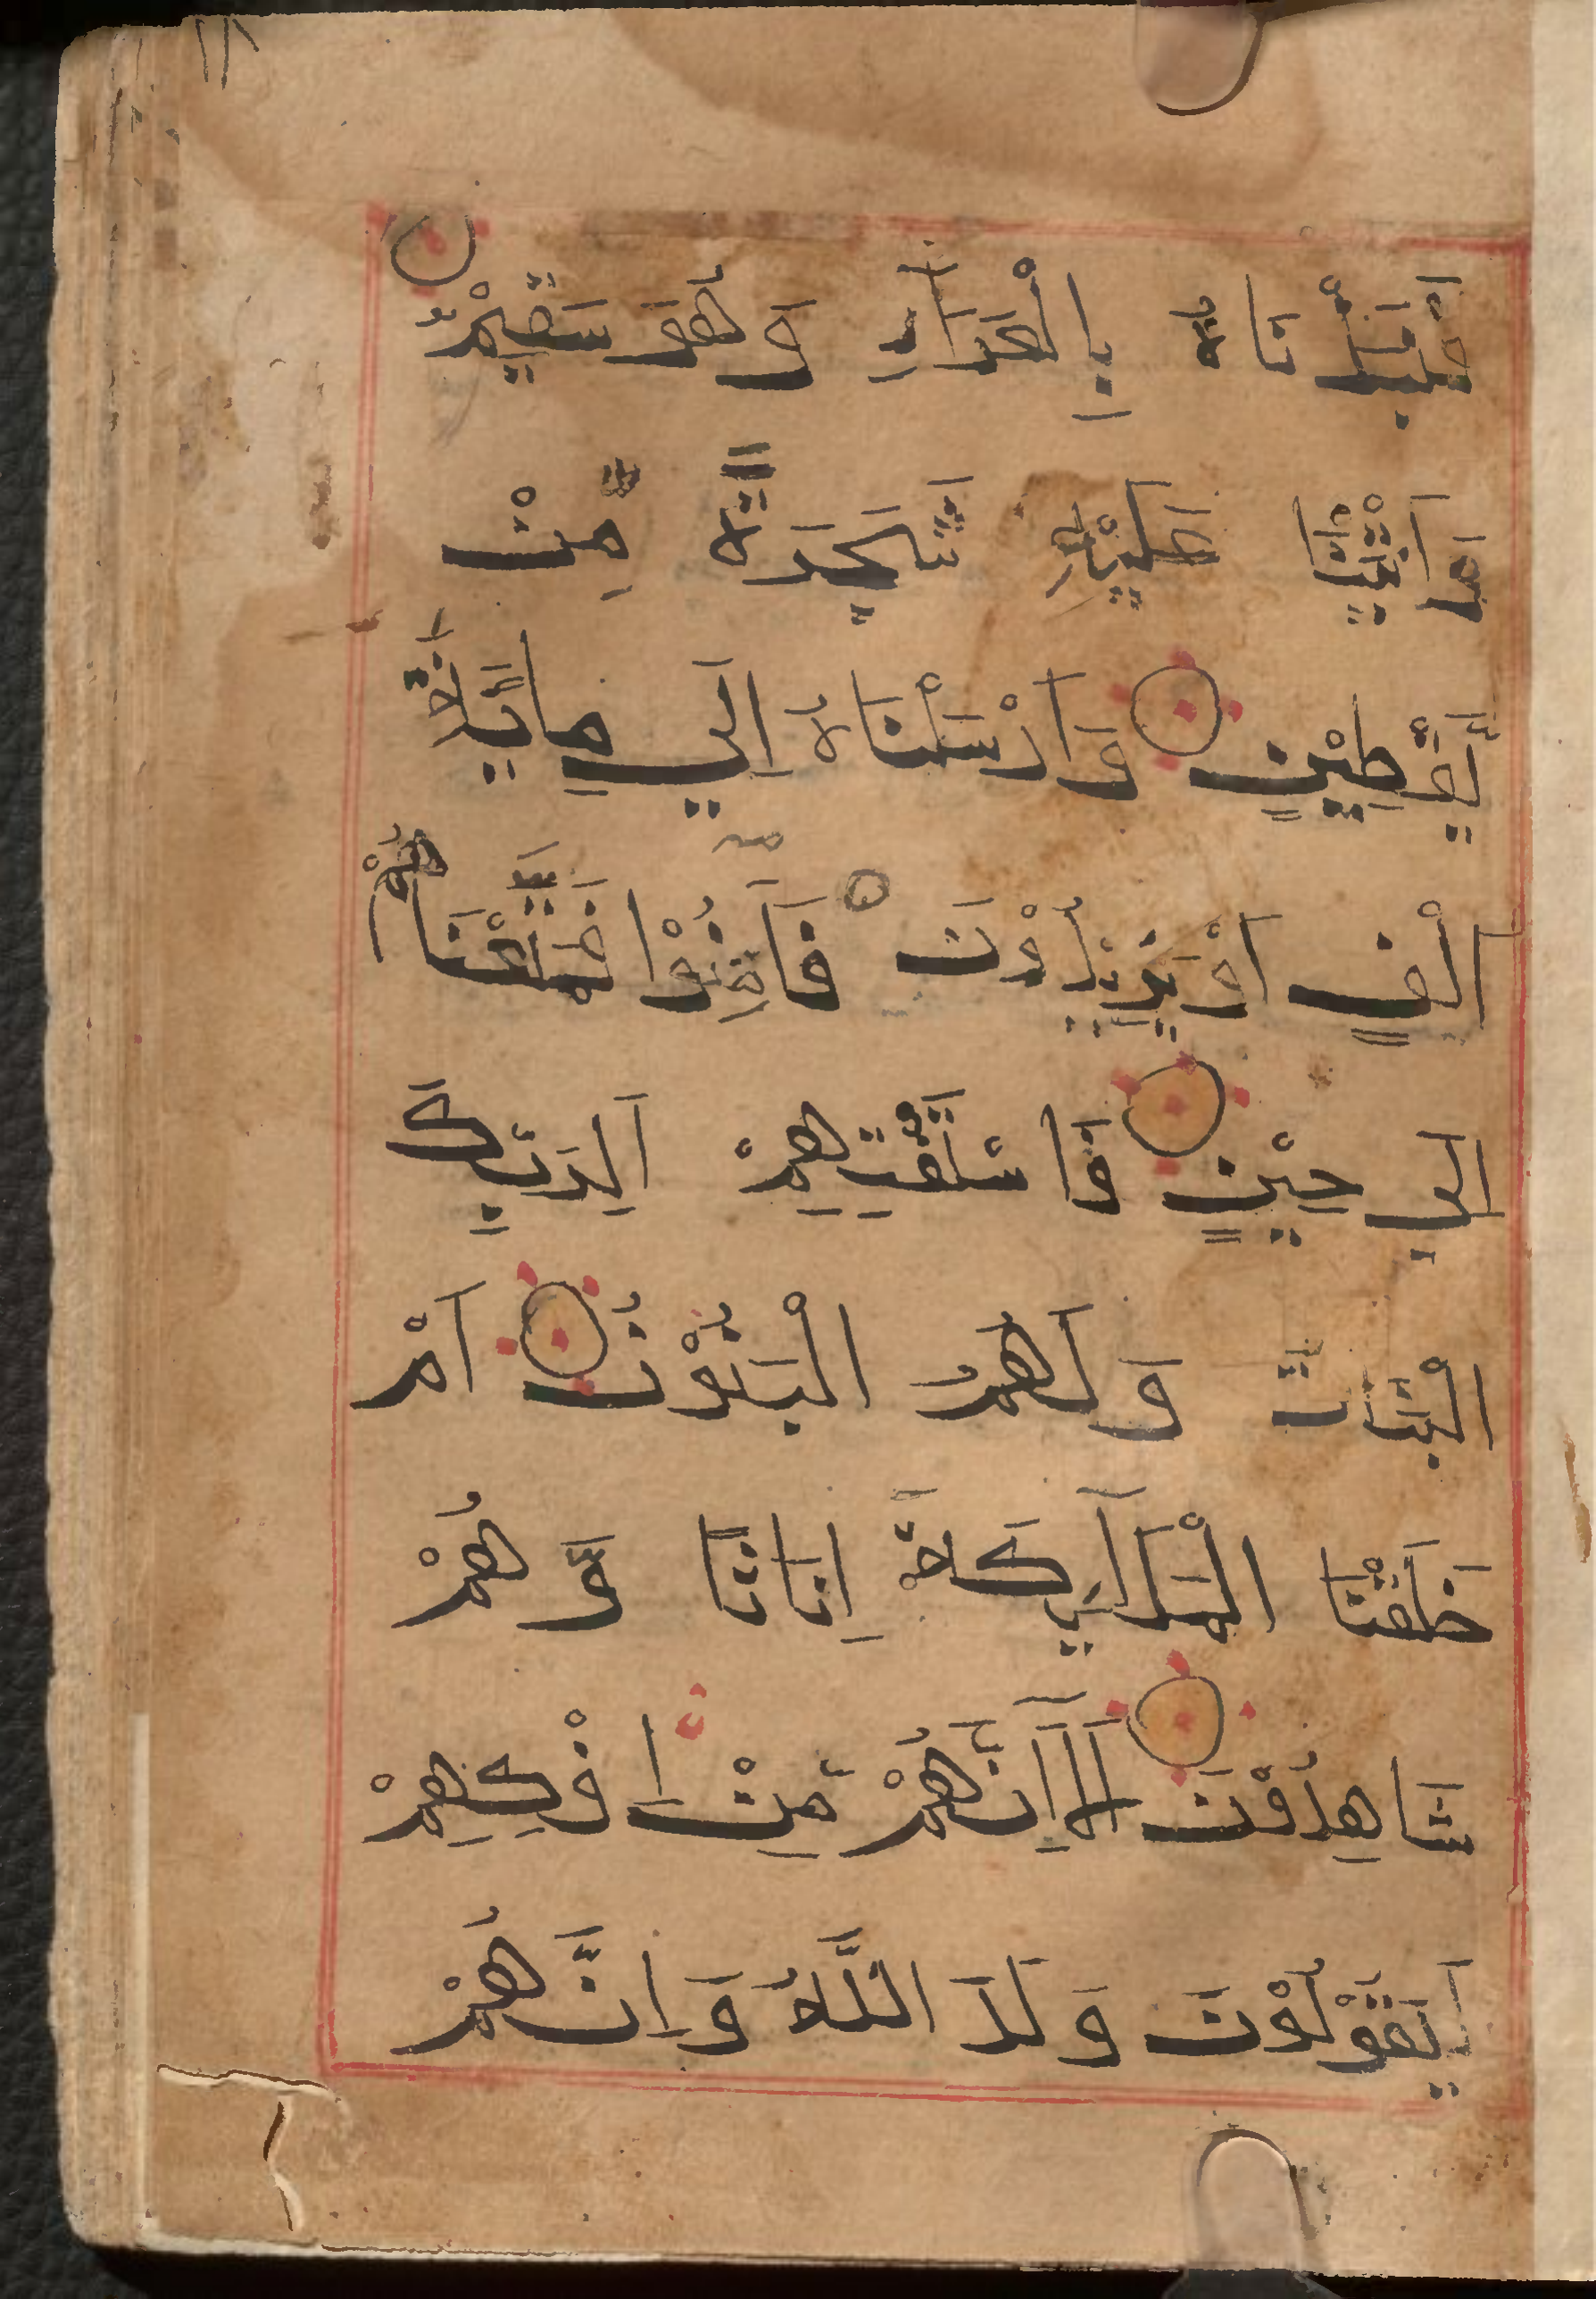 ١١٨
فَنَبَذْنَاهُ بِالْعَرَآءِ وَهُوَ سَقِيْمٌ
وَاَنْبَتْنَا عَلَيْهِ شَجَرَةً مِّنْ
يَّقْطِيْنٍ وَاَرْسَلْنَاهُ اِلٰي مِايَةِ
اَلْفٍ اَوْ يَزِيْدُوْنَ فَاٰمَنُوْا فَمَتَّعْنَاهُمْ
اِلٰي حِيْنٍ فَاسْتَفْتِهِمْ اَلِرَبِّكَ
الْبَنَاتُ وَلَهُمُ الْبَنُوْنَ اَمْ
خَلَقْنَا الْمَلٰٓئِكَةَ اِنَاثًا وَّهُمْ
شَاهِدُوْنَ اَلَآ اِنَّهُمْ مِّنْ اِفْكِهِمْ
لَيَقُوْلُوْنَ وَلَدَ اللّٰهُ وَاِنَّهُمْ